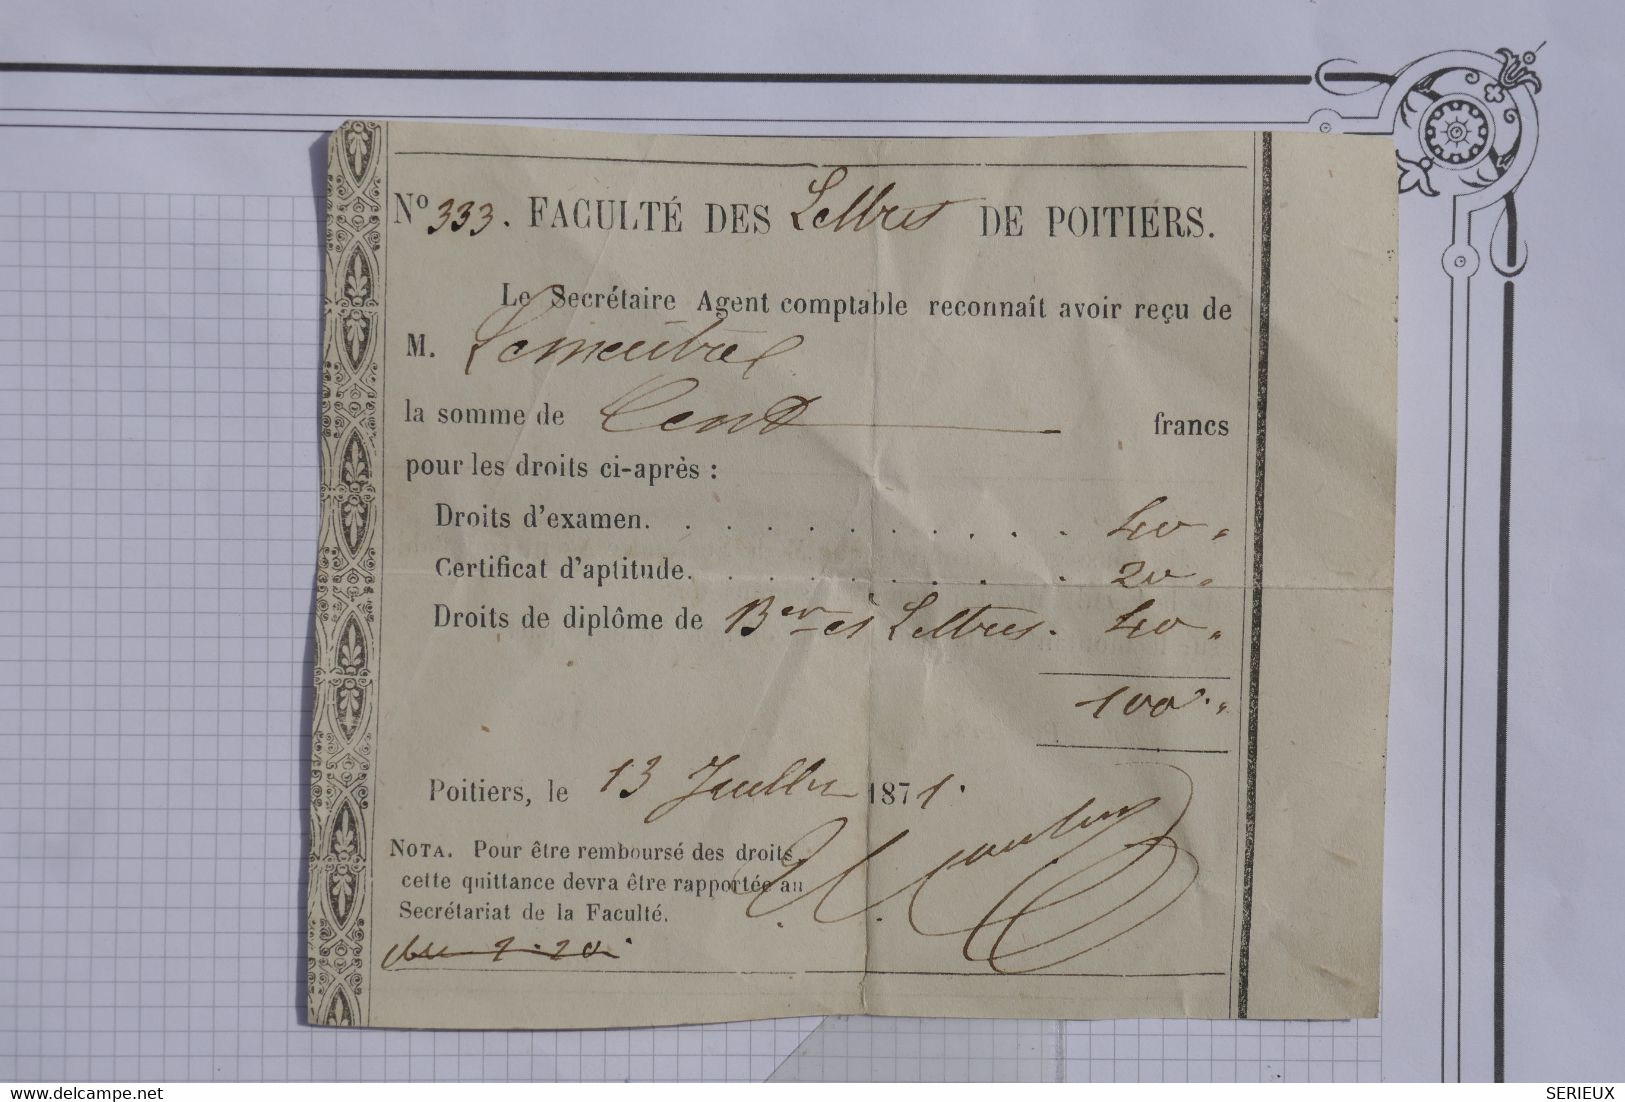 N° 333. FACULTÉ DES Lettres DE POITIERS.
Le Secrétaire Agent comptable reconnaît avoir reçu de
M.
la somme de Cent francs
pour les droits ci-après :
Droits d'examen. . . . . . . . . . . 40 "
Certificat d'aptitude. . . . . . . . . 20 "
Droits de diplôme de Ber ès Lettres. 40 "
100 "
Poitiers, le 13 Juillet 1871.
NOTA. Pour être remboursé des droits,
cette quittance devra être rapportée au
Secrétariat de la Faculté.
delcampe.net
SERIEUX